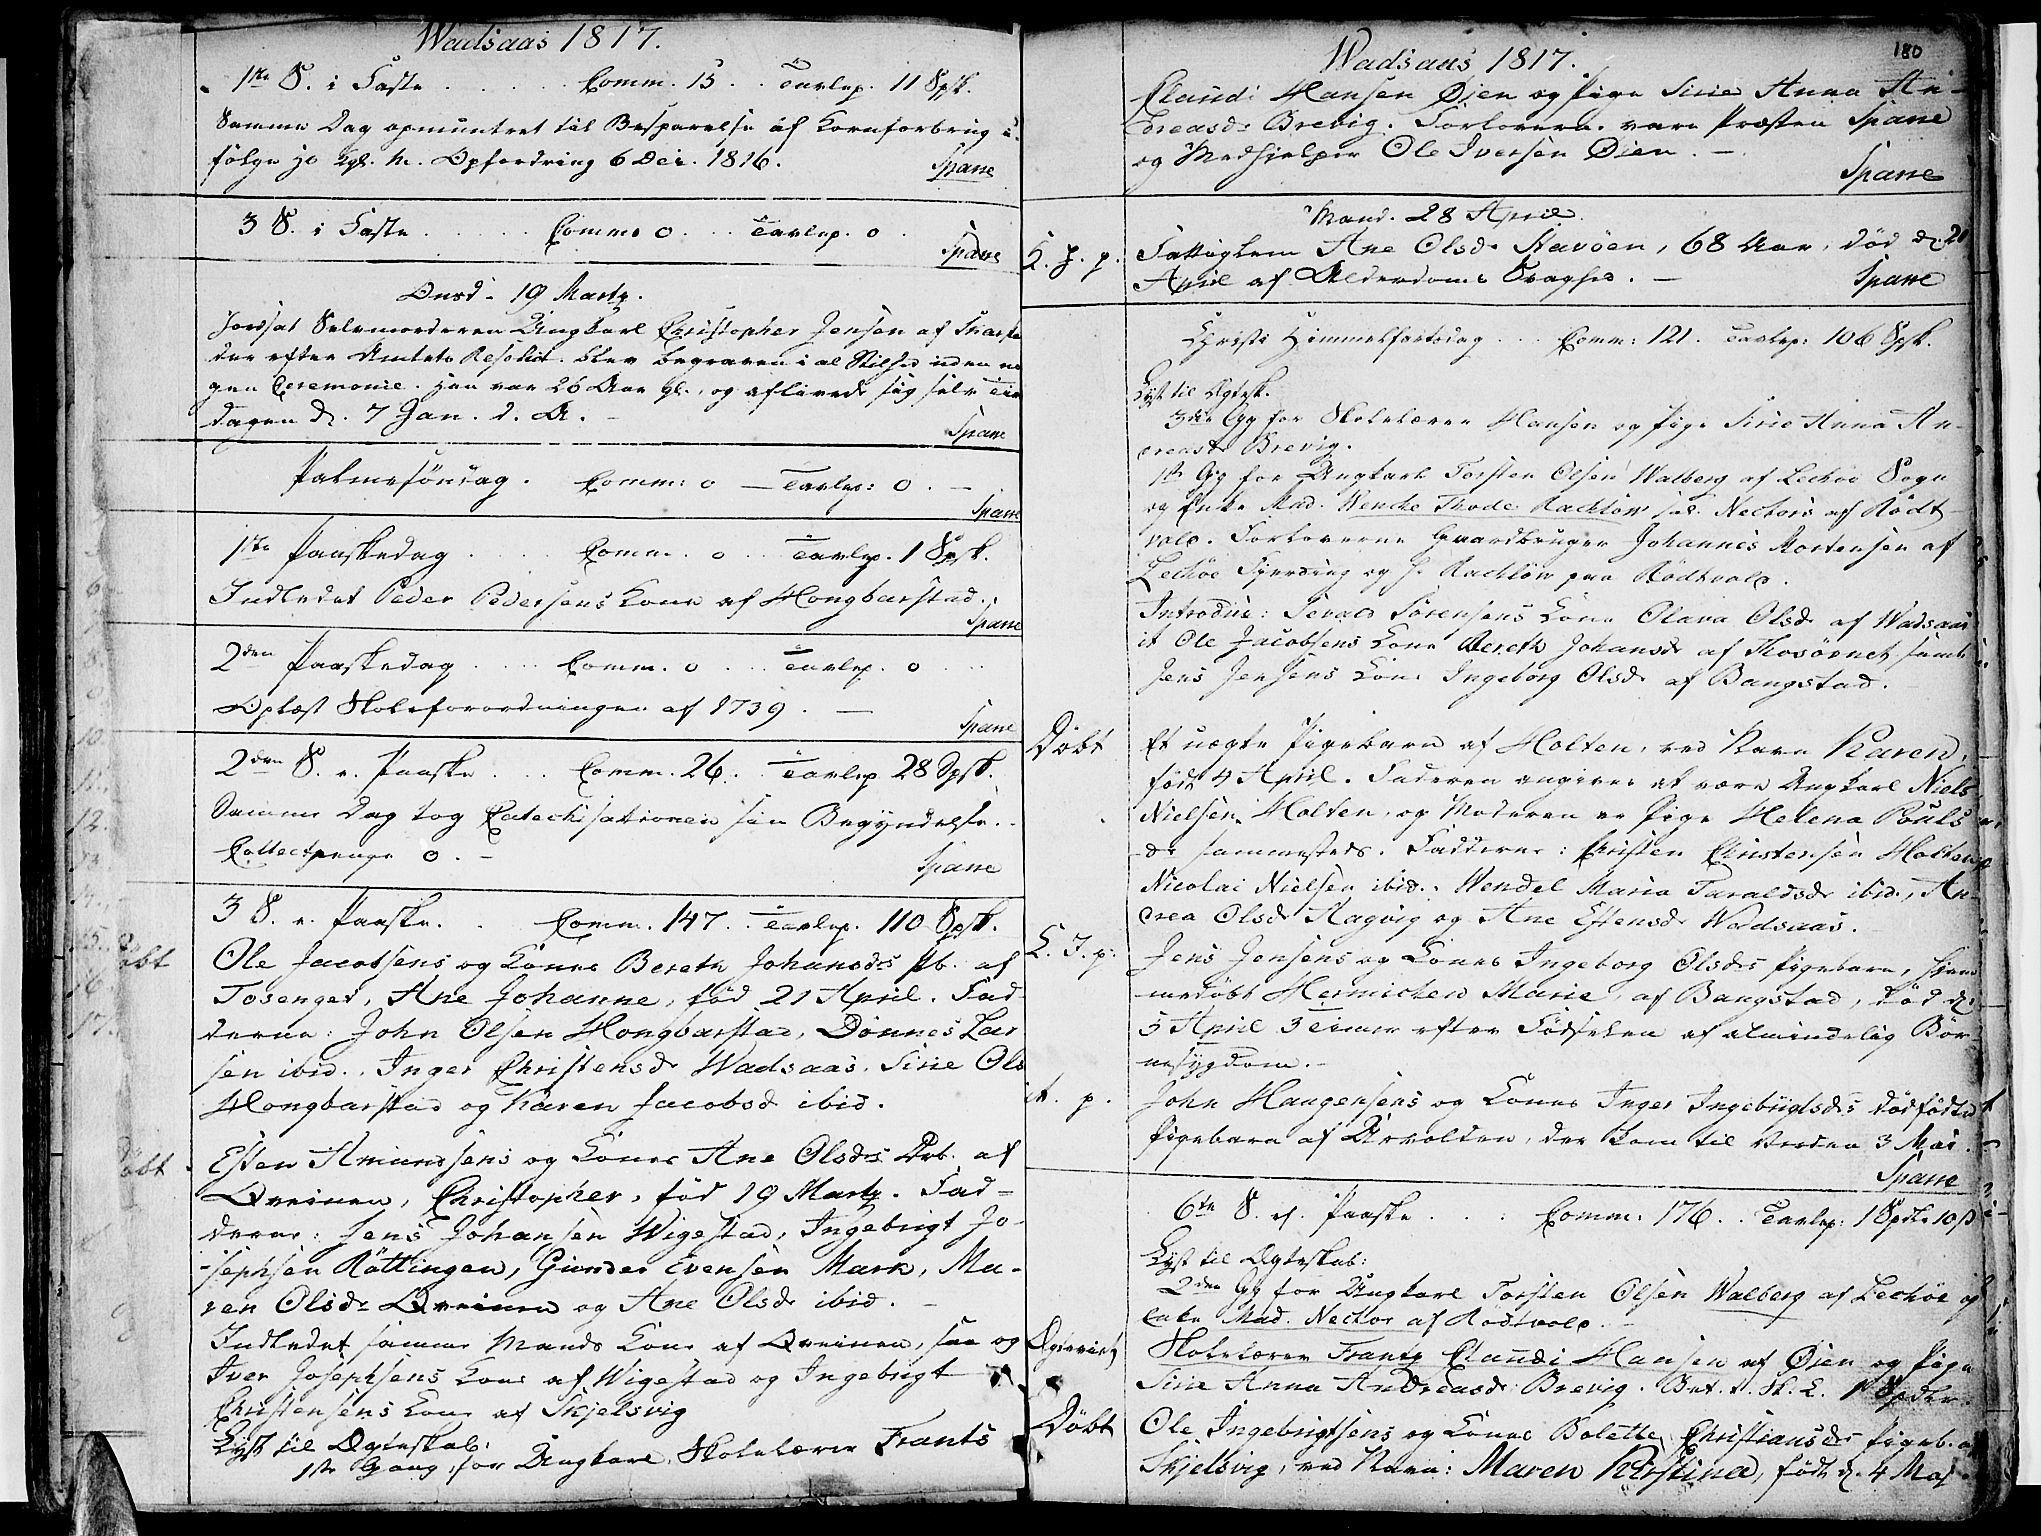 Wadsaas 1817.
1ste S. i Faste . . . . . Comm. 13 . . Tavlep. 11 Spsk.
Samme Dag opmuntret til Besparelse af Kornforbrug i
følge Opfordring 6 Dec. 1816.
Spane
3 S. i Faste . . . . . Comm. 0 . . . Tavlep. 0 .
Spane
Onsd. 19 Marty.
Jordsat Selvmorderen Ungkarl Christopher Jensen af
der efter Amtets Resolut. blev begraven i al Stilhed uden no
gen Ceremonie. Han var 26 Aar gl., og aflivede sig selv Tirs
dagen d. 7 Jan. d. A.
Spane
Palmesöndag . Comm: 0 — Tavlep: 0 . —
Spane
1ste Paaskedag . . . . Comm. 0 . . Tavlep. 1 Spsk.
Indledet Peder Pedersens Kone af Hongbarstad.
Spane
2den Paaskedag . . . . Comm. 0 . . . Tavlep. 0 . . .
Oplæst Skoleforordningen af 1739 . —
Spane
2den S. e. Paaske . . . Comm. 26 . . Tavlep. 28 Spsk.
Samme Dag tog Catechisationen sin Begyndelse.
Collectpenge 0. —
Spane
3 S. e. Paaske. . Comm. 147 . . Tavlep. 110 Spsk.
Döbt
Ole Jacobsens og Kones Bereth Johansds Pb. af
Tosenget, Ane Johanne, föd 21 April. Fad-
derne: John Olsen Hongbarstad, Dönnes Lar
sen ibid., Inger Christensd. Wadsaas, Sirie Ols
Hongbarstad og Karen Jacobsd ibid.
Döbt
Esten Amundsens og Kones Ane Olsds Drb. af
Qveinen, Christopher, föd 19 Marty. Fad-
derne: Jens Johansen Wigestad, Ingebrigt Jo-
sephsen Röttingen, Gunder Evensen Mark, Ma-
ren Olsd. Qveinen og Ane Olsd. ibid. —
Indledet samme Mands Kone af Qveinen, saa og
Iver Josephsens Kone af Wigestad og Ingebrigt
Christensens Kone af Skjelsvig
Lyst til Ægteskab:
1ste Gang for Ungkarl Skolelærer Frants
Wadsaas 1817.
180
Claudi Hansen Öien og Pige Sirie Anna An-
dreasd. Brevig. Forlovere vare Præsten Spane
og Medhjelper Ole Iversen Öien. —
Spane
Mand. 28 April.
Fattiglem Ane Olsd. Havöen, 68 Aar, död d. 20
April af Alderdoms Svaghed. —
Spane
Christi Himmelfartsdag . . . Comm: 121. Tavlep: 106 Spsk.
Lyst til Ægtesk.
3die Gg for Skolelærer Hansen og Pige Sirie Anna An-
dreasd. Brevig.
1ste Gg for Ungkarl Torsten Olsen Walberg af Lechöe Sogn
og Enke Mad. Wencke Thode Rachlöw sal. Nechors af Rödt-
vold. Forloverne Gaardbruger Johannes Mortensen af
Lechöe Fjerding og Rachlöw paa Rödtvold.
Introduc: Sevald Sörensens Kone Olava Olsd. af Wadsaas
it Ole Jacobsens Kone Bereth Johansd. af samt
Jens Jensens Kone Ingeborg Olsd. af Bangstad.
Döbt
Et uægte Pigebarn af Holten, ved Navn Karen,
föd 4 April. Faderen angives at være Ungkarl Niels
Nielsen Holten, og Moderen er Pige Helena Pouls
d. sammesteds. Fadderne: Christen Christensen Holten
Nicolai Nielsen ibid., Wendel Maria Taraldsd. ibid., An-
drea Olsd. Hagvig og Ane Estensd. Wadsaas.
Jens Jensens og Kones Ingeborg Olsds Pigebarn, hjem
medöbt Hermichen Marie, af Bangstad, död d.
5 April 3 Timer efter Födselen af almindelig Bör-
nesygdom. —
it. p.
John Haugensens og Kones Inger Ingebrigtsds dödfödte
Pigebarn af Urvolden, der kom til Verden 3 Mai.
Spane
6te S. ef. Paaske . . . Comm: 176. . Tavlep: 1 Spdlr 10 s
Lyst til Ægteskab:
2den Gg for Ungkarl Torsten Olsen Walberg af Lechöe og
Enke Mad. Nechor af Rödtvold.
Ægteviet
Skolelærer Frantz Claudi Hansen af Öien og Pige
Sirie Anna Andreasd. Brevig. 1 Spdlr.
Döbt
Ole Ingebrigtsens og Kones Bolette Christiansds Pigeb. af
Skjelsvig, ved Navn: Maren Kirstina, födt d. 4 Mai